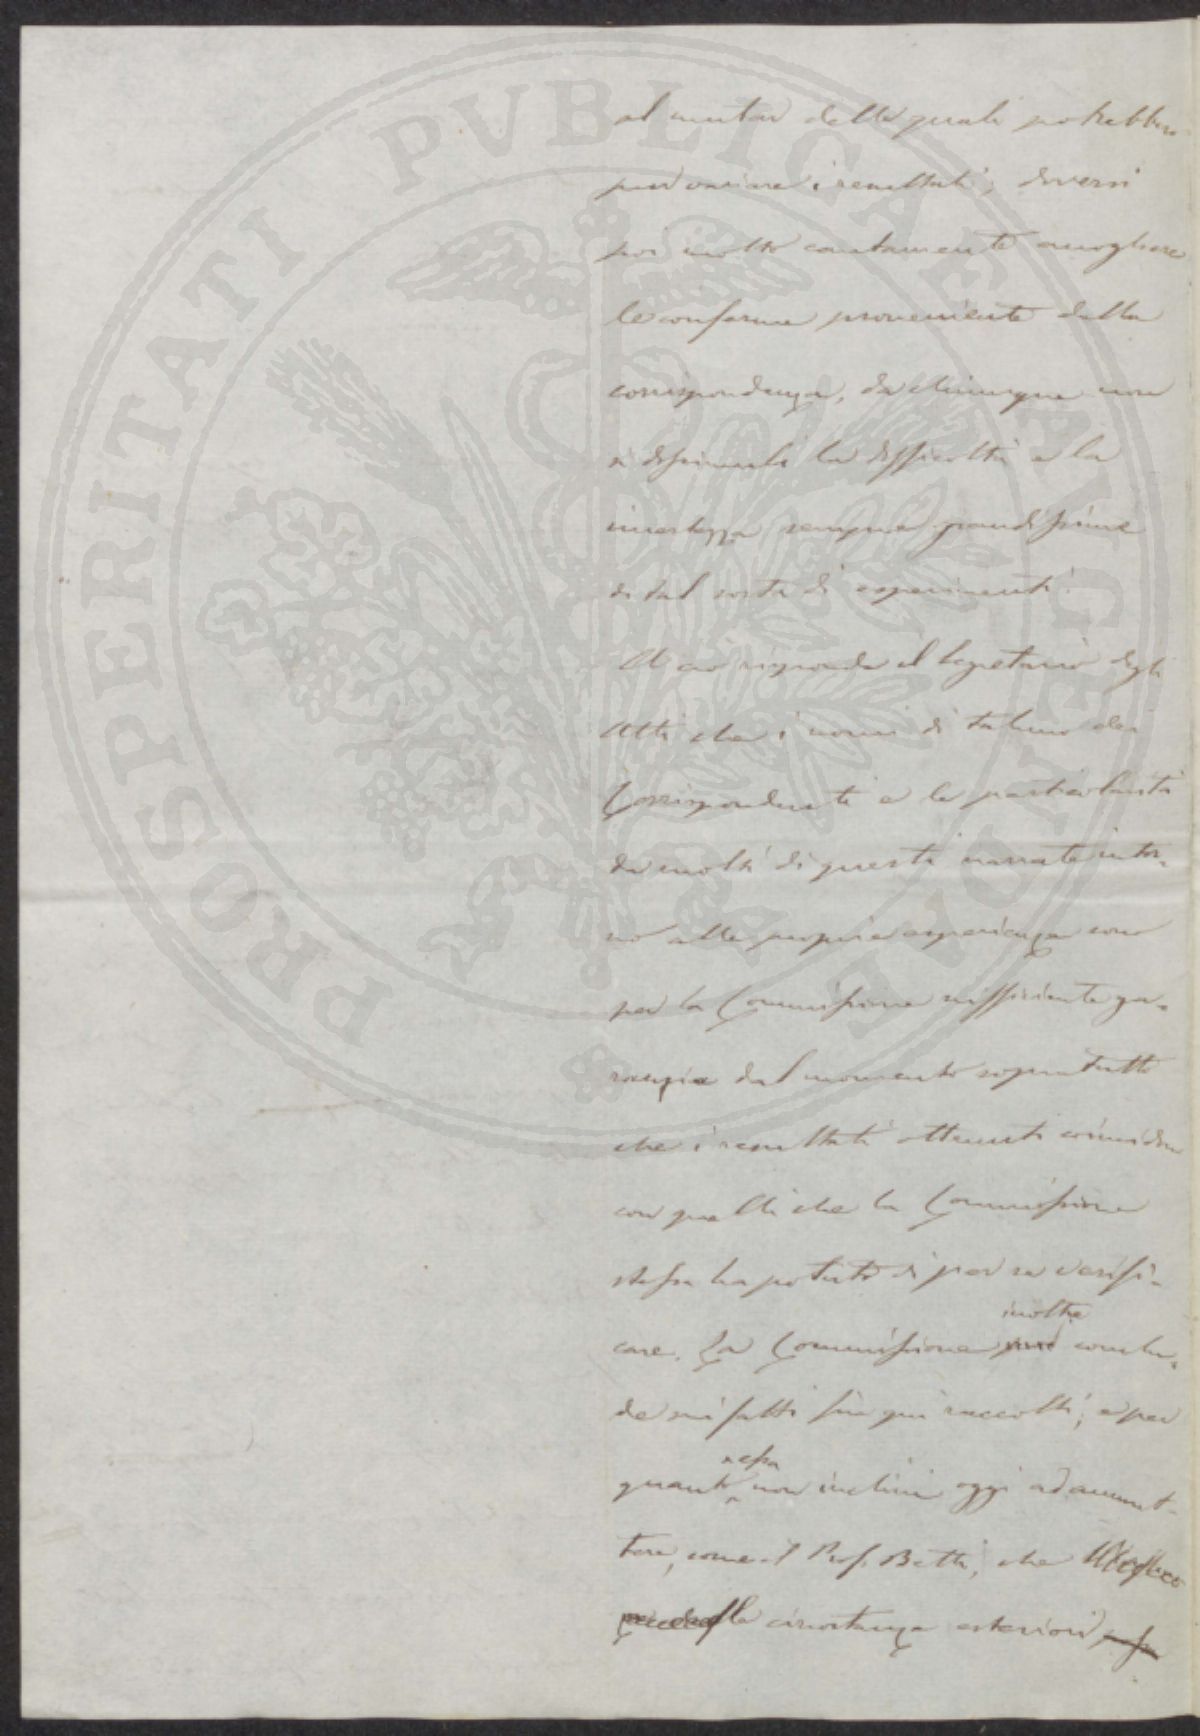 al mutar delle quali potrebbero
pur variare i resultati, doversi
poi molto cautamente accogliere
le conferme provenienti dalla
corrispondenza, da chiunque non
si dissimuli la difficoltà e la
incertezza sempre grandissime
di tal sorta di esperimenti.
A ciò risponde il Segretario degli
Atti che i nomi di taluno dei
Corrispondenti e le particolarità
da molti di questi narrate intor-
no alle proprie esperienze sono
per la Commissione sufficiente ga-
ranzia dal momento sopratutto
che i resultati ottenuti coincidono
con quelli che la Commissione
stessa ha potuto di per se verifi-
care. La Commissione inoltre conclu-
de sui fatti fin qui raccolti; e per
quanto essa non inclini oggi ad ammet-
tere, come il Prof. Betti, che
le circostanze esteriori
PROSPERITATI PVBLICAE AVGENDAE